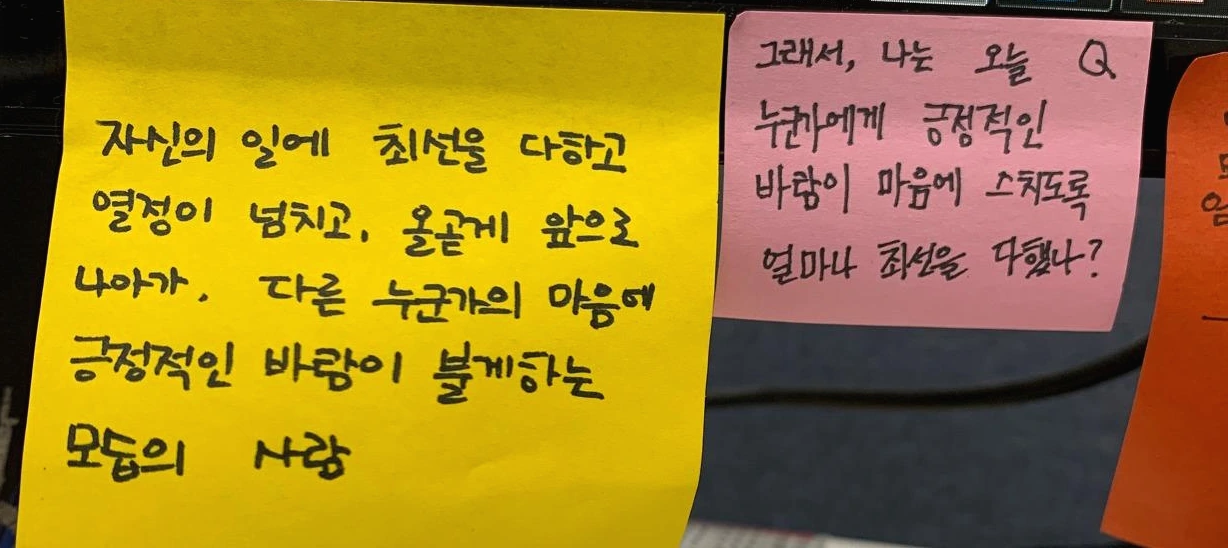 자신의 일에 최선을 다하고
열정이 넘치고, 올곧게 앞으로
나아가, 다른 누군가의 마음에
긍정적인 바람이 불게하는
모둡의 사람
그래서, 나는 오늘 Q
누군가에게 긍정적인
바람이 마음에 스치도록
얼마나 최선을 다했나?